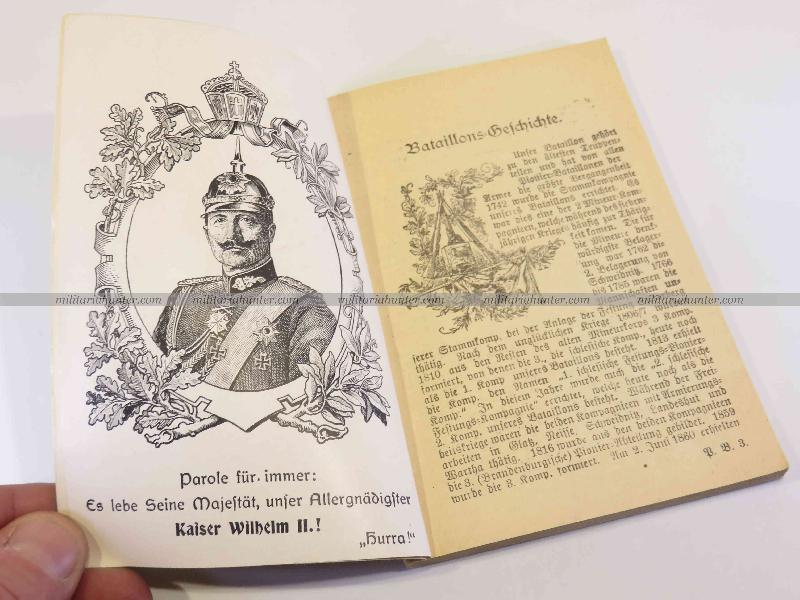 Parole für immer:
Es lebe Seine Majestät, unser Allergnädigster
Kaiser Wilhelm II.!
„Hurra!“
Bataillons-Geschichte.
Unser Bataillon gehört
zu den ältesten Truppen-
teilen und hat von allen
Pionier-Bataillonen der
Armee die größte Vergangenheit
1742 wurde die Stammkompagnie
unseres Bataillons errichtet. Es
war dies eine der 2 Mineur Kom-
pagnieen, welche während des sieben-
jährigen Krieges häufig zur Thätig-
keit kamen. Die für
die Mineure denk-
würdigste Belager-
ung war 1762 die
2. Belagerung von
Schweidnitz. 1766
bis 1786 waren die
Mannschaften un-
serer Stammkomp. bei der Anlage der Festung
thätig. Nach dem unglücklichen Kriege 1806/7 wurden
1810 aus den Resten des alten Mineurkorps 3 Komp.
formiert, von denen die 3., die schlesische Komp., heute noch
als die 1. Komp unseres Bataillons besteht. 1813 erhielt
die Komp. den Namen „1. schlesische Festungs-Pionier-
Komp.“ In diesem Jahre wurde auch die „2. schlesische
Festungs-Kompagnie“ errichtet, welche heute noch als die
2. Komp. unseres Bataillons besteht. Während der Frei-
heitskriege waren die beiden Kompagnieen mit Armierungs-
arbeiten in Glatz, Neisse, Schweidnitz, Landeshut und
Wartha thätig. 1816 wurde aus den beiden Kompagnieen
die 3. (Brandenburgische) Pionier-Abteilung gebildet. 1859
wurde die 3. Komp. formiert. Am 2. Juni 1860 erhielten
P. B. 3.
militariahunter.com militariahunter.com militariahunter.com militariahunter.com militariahunter.com